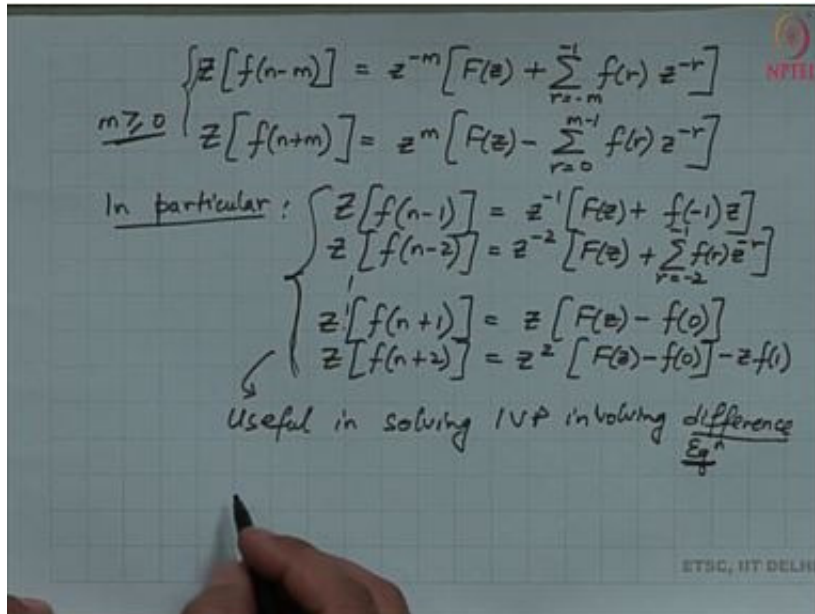 Z[f(n-m)] = z^{-m}[F(z) + \sum_{r=-m}^{-1} f(r) z^{-r}]
NPTEL
m ≥ 0
Z[f(n+m)] = z^{m}[F(z) - \sum_{r=0}^{m-1} f(r) z^{-r}]
In particular : Z[f(n-1)] = z^{-1}[F(z) + f(-1) z]
Z[f(n-2)] = z^{-2}[F(z) + \sum_{r=-2}^{-1} f(r) z^{-r}]
Z[f(n+1)] = z[F(z) - f(0)]
Z[f(n+2)] = z^{2}[F(z) - f(0)] - z f(1)
Useful in solving IVP involving difference
Eq^n
ETSC, IIT DELHI